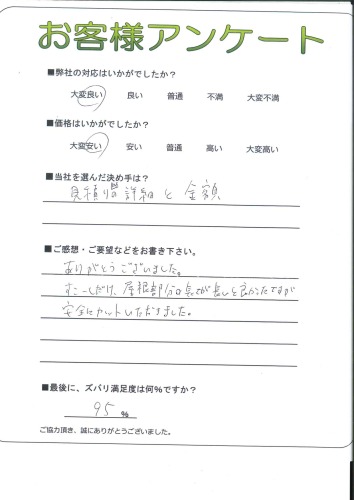 お客様アンケート
■弊社の対応はいかがでしたか？
大変良い 良い 普通 不満 大変不満
■価格はいかがでしたか？
大変安い 安い 普通 高い 大変高い
■当社を選んだ決め手は？
見積り 詳細 と 金額
■ご感想・ご要望などをお書き下さい。
ありがとうございました。
すこーしだけ、屋根部分の 長いと良かったですが
安全にカットいただきました。
■最後に、ズバリ満足度は何%ですか？
95 %
ご協力頂き、誠にありがとうございました。